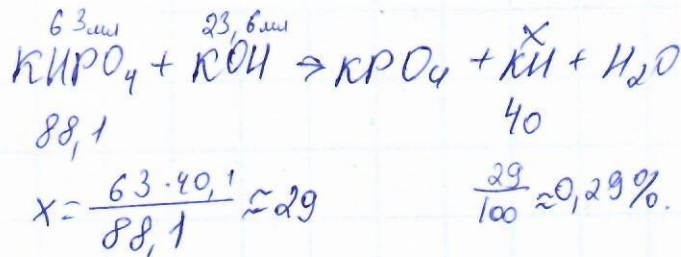 63мл 23,6мл x
KHPO₄ + KOH → KPO₄ + KH + H₂O
88,1 40
x = 63·40,1 / 88,1 ≈ 29 29/100 ≈ 0,29%.